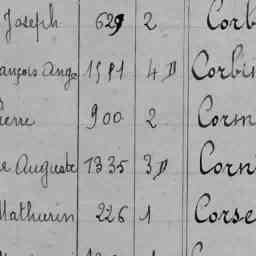 Joseph 629 2 Corb
ançois Ange 1581 4 D Corbin
ierre 900 2 Corm
e Auguste 1335 3 D Corni
Mathurin 226 1 Corse